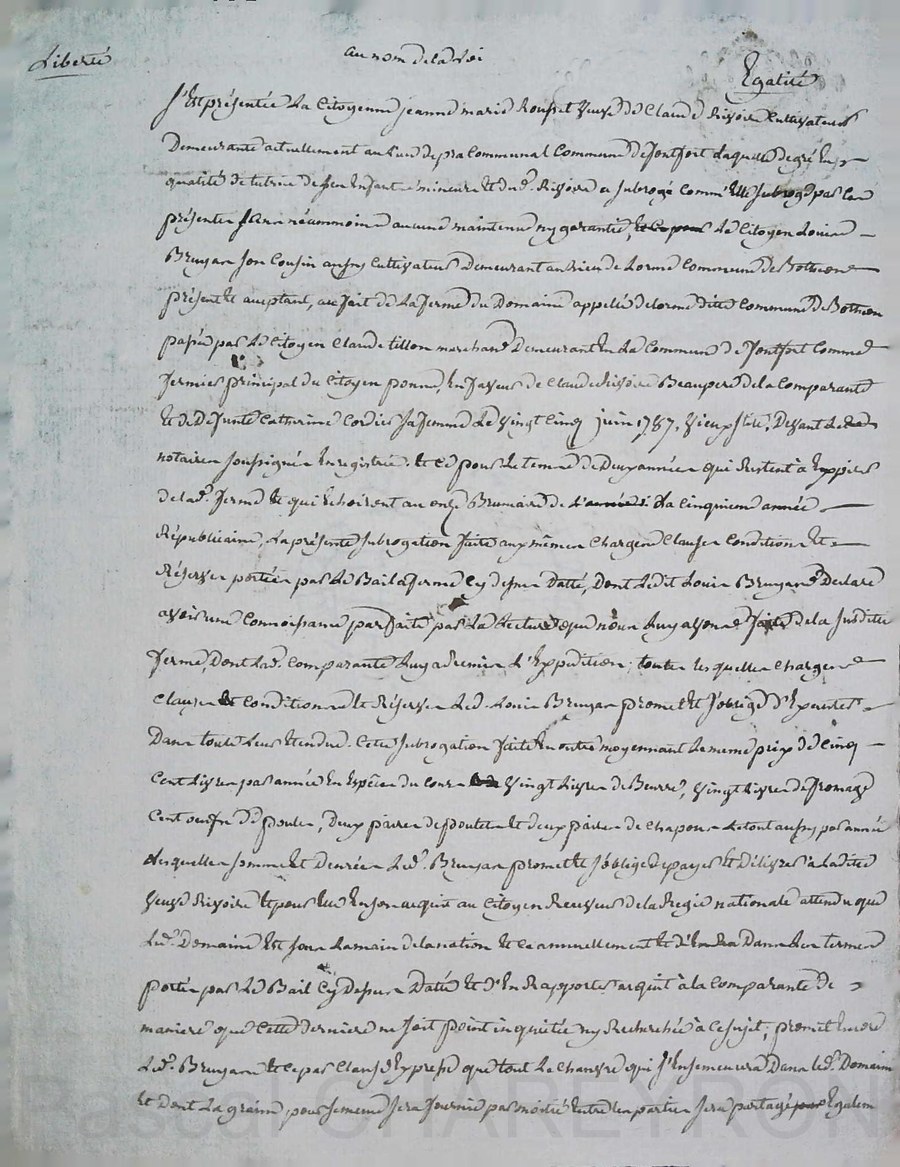 Liberté
au nom de la Loi
Egalité
S'Est présentée La Citoyenne jeanne marie Rousset Veuve de Claude Rivoire Cultivateur
Demeurante actuellement au Lieu de pra Communal Commune de fontfort Laquelle de gré En
qualité de tutrice de ses Enfants mineurs Et dud. Rivoire a subrogé Comm' Elle subroge par Ces
présentes sans néanmoins aucune maintenue ny garantie, Le Citoyen Louis
Bruyas son Cousin aussy Cultivateur Demeurant au Lieu de Lorme Commune de Botheon
présent Et acceptant, au fait de La ferme du Domaine appellé de lorme ditte Commune de Botheon
passée par Le Citoyen Claude tillon marchand Demeurant En La Commune de fontfort Comme
fermier principal du Citoyen ponnd, En faveur de Claude Rivoire Beaupere de la Comparante
Et de Defunte Catherine Cordier sa femme Le Vingt Cinq juin 1787, Vieux stile, Devant
notaire soussigné Enregistrée. Et ce pour Le temps de Deux années qui Restent à Expirer
de lad. ferme Et qui Echoiront au onze Brumaire de L'année La cinquieme année
Républicaine, La présente subrogation faite aux mêmes Charges Clauses Conditions Et
Réserves portées par Le Bail a ferme Cy dessus Datté, Dont Ledit Louis Bruyas Declare
avoir une Connoissance parfaite par La Lecture que nous Luy avons faite de la susditte
ferme, Dont Lad. Comparante Luy a Remis L'Expédition; toutes Lesquelles Charges
Clauses Conditions Et Réserves Led. Louis Bruyas promet Et s'oblige D'Executer
Dans toute Leur Etendue. Cette subrogation faite En outre moyennant Le meme prix de Cinq
Cent Livres par année En Espèces du Cours Vingt Livres de Beurre, Vingt Livres de fromage
Cent oeufs de poules, Deux paires de poulets Et deux paires de chapons Le tout aussy par année
Lesquelles somme Et denrées Led. Bruyas promet Et s'oblige de payer Et Délivrer à Ladite
Veuve Rivoire Et pour Elle En son acquit au Citoyen Receveur de la Regie nationale attendu que
Led. Domaine Est sous La main de la nation Et Ce annuellement Et Dans Les termes
portés par Le Bail Cy Dessus Datté Et d'En Rapporter acquit à la Comparante de
maniere que Cette derniere ne soit point inquiétée ny Recherchée à Ce sujet; promet Encore
Led. Bruyas Et Ce par Clause Expresse que tout Le Chanvre qui s'Ensemencera Dans led. Domaine
Et dont La graine pour semence sera fournie par moitié Entre Les parties sera partagé Egalem
Pascal CHAREYRON